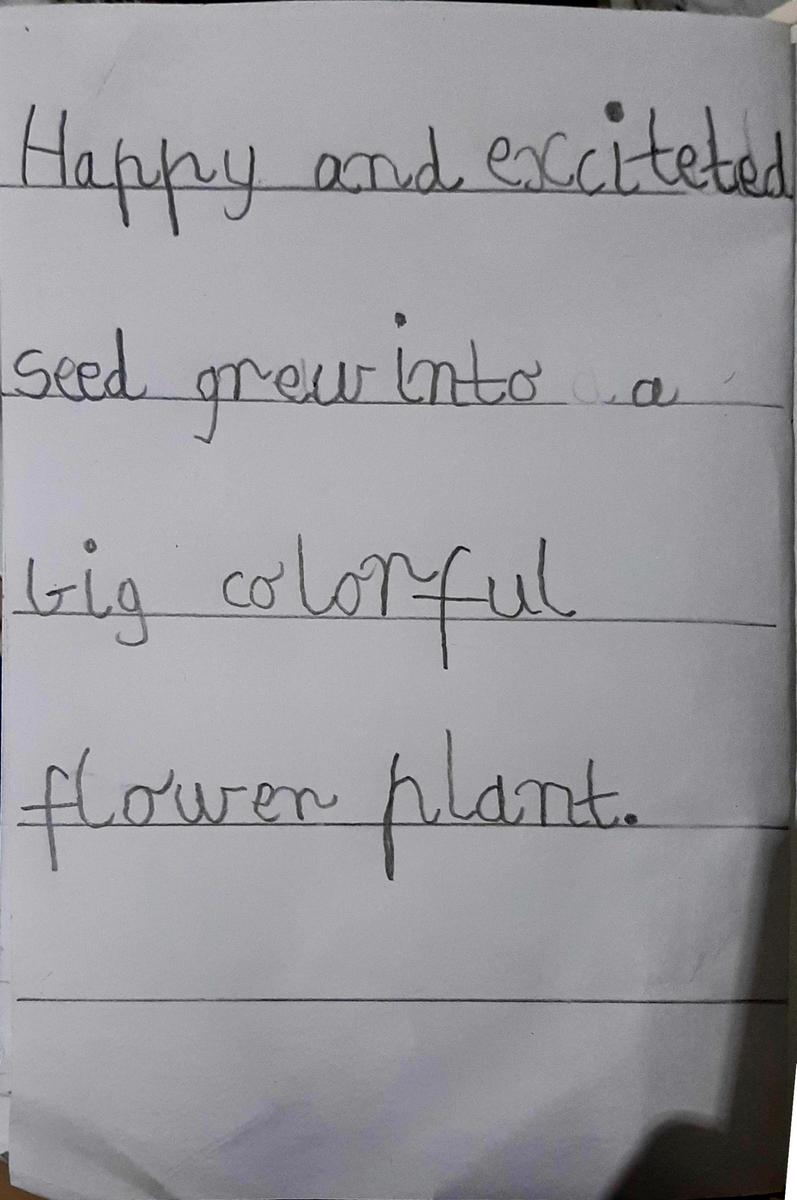 Happy and exciteted
seed grew into a
big colorful
flower plant.